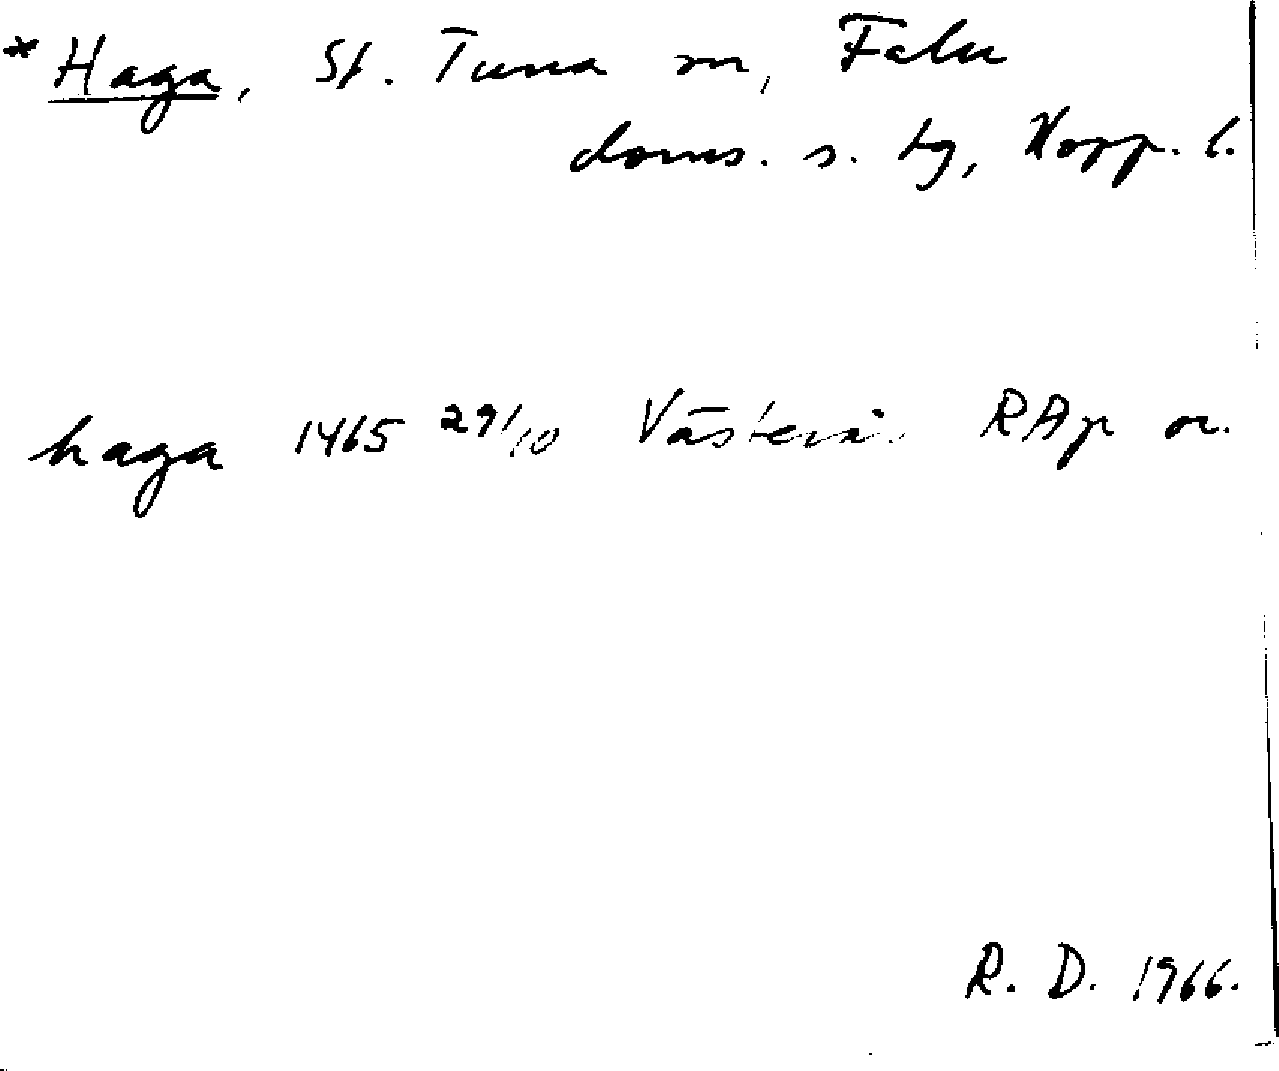 *Haga, St. Tuna sn, Falu
doms. s. tg, Kopp. l.
haga 1465 29/10 Västerås RAp or.
R. D. 1966.